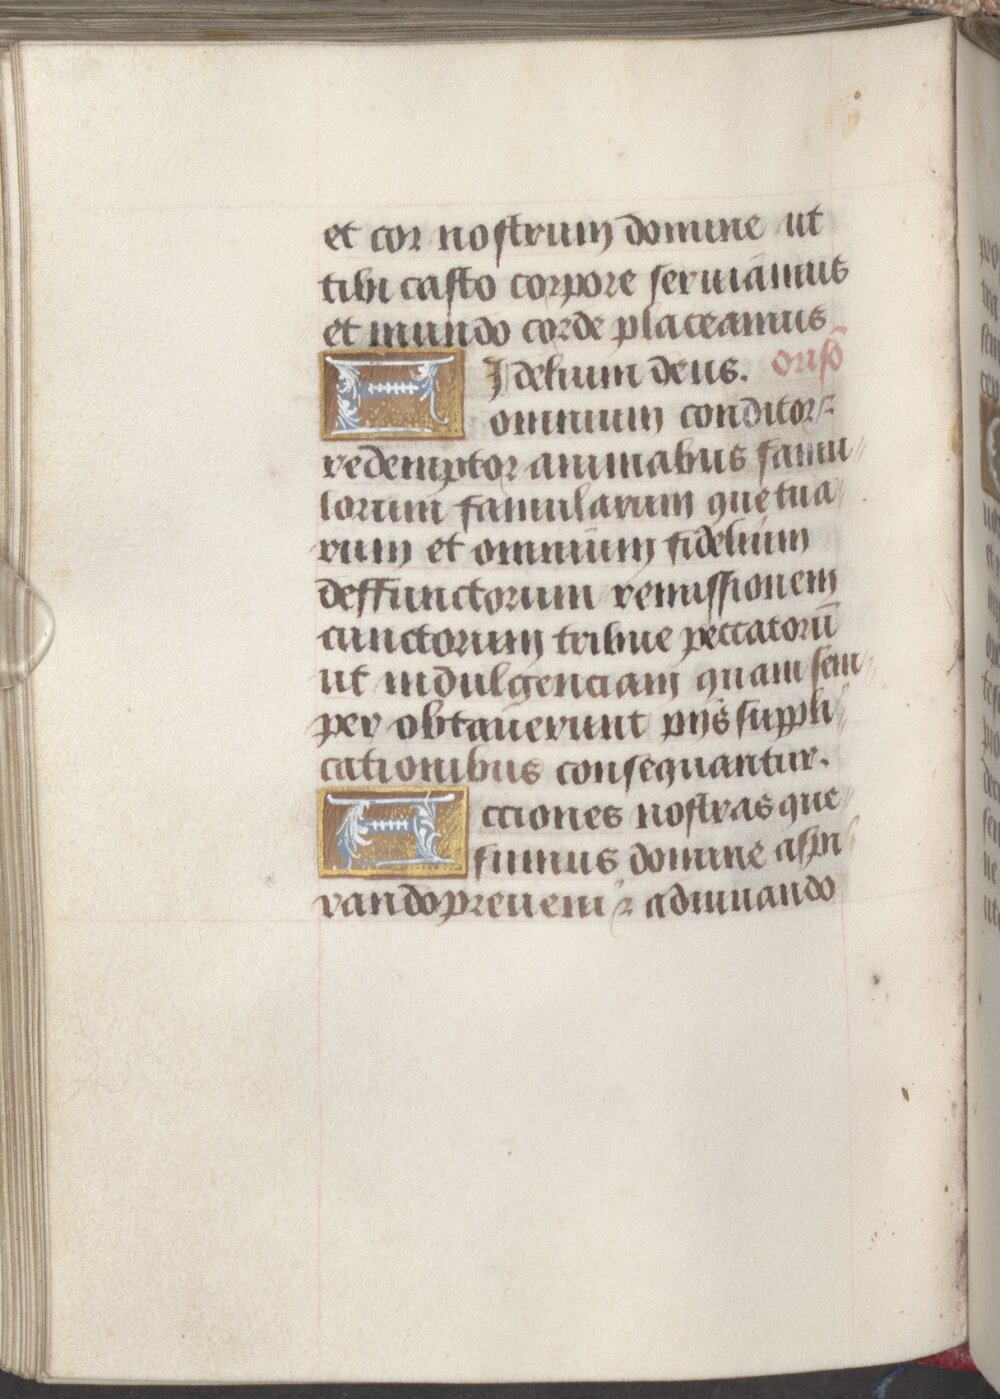 et cor nostrum domine ut
tibi casto corpore seruiamus
et mundo corde placeamus
FIdelium deus. oriso
omnium conditor ⁊
redemptor animabus famu
lorum famularum que tua
rum et omnium fidelium
deffunctorum remissionem
cunctorum tribue peccatoru̅
ut indulgenciam quam sem
per obtauerunt pijs suppli
cationibus consequantur.
Acciones nostras que
sumus domine aspi
rando preueni ⁊ adiuuando